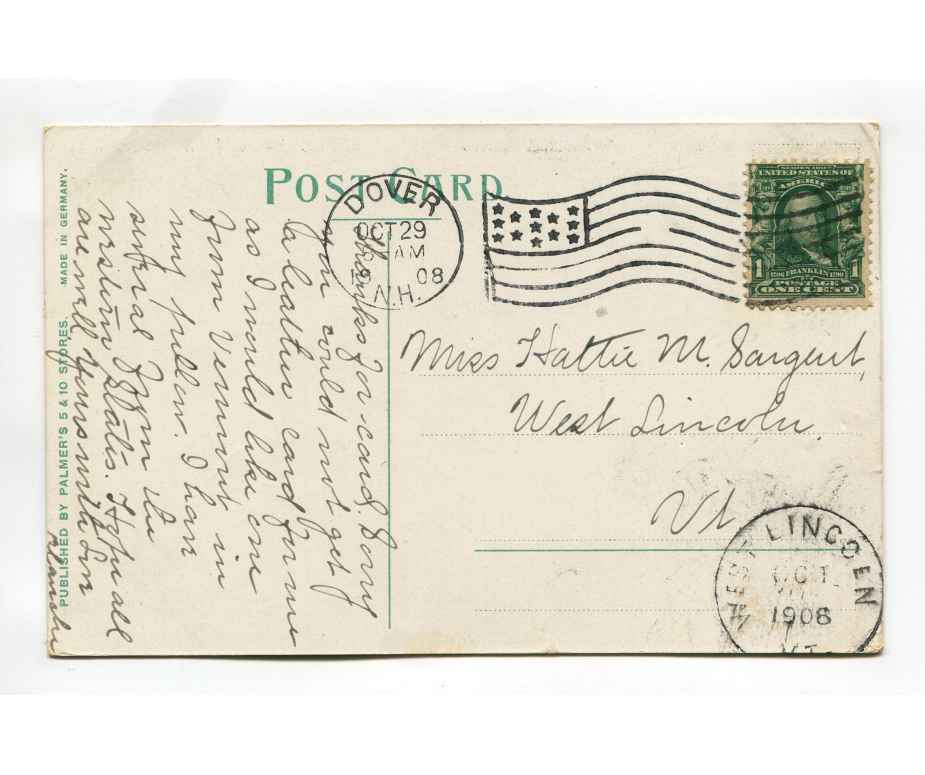 POST CARD
DOVER
OCT 29
AM
08
N.H.
UNITED STATES OF
AMERIC
1 FRANKLIN 1
POSTAGE
ONE CENT
Miss Hattie M. Sargent,
West Lincoln,
Vt.
WEST LINCOLN
OCT
1908
VT.
Thanks for card. Sorry
you could not get
a leather card for me
as I would like one
from Vermont in
my pillow. I have
several from the
western states. Hope all
are well. Yours with love
PUBLISHED BY PALMER'S 5 & 10 STORES. MADE IN GERMANY.